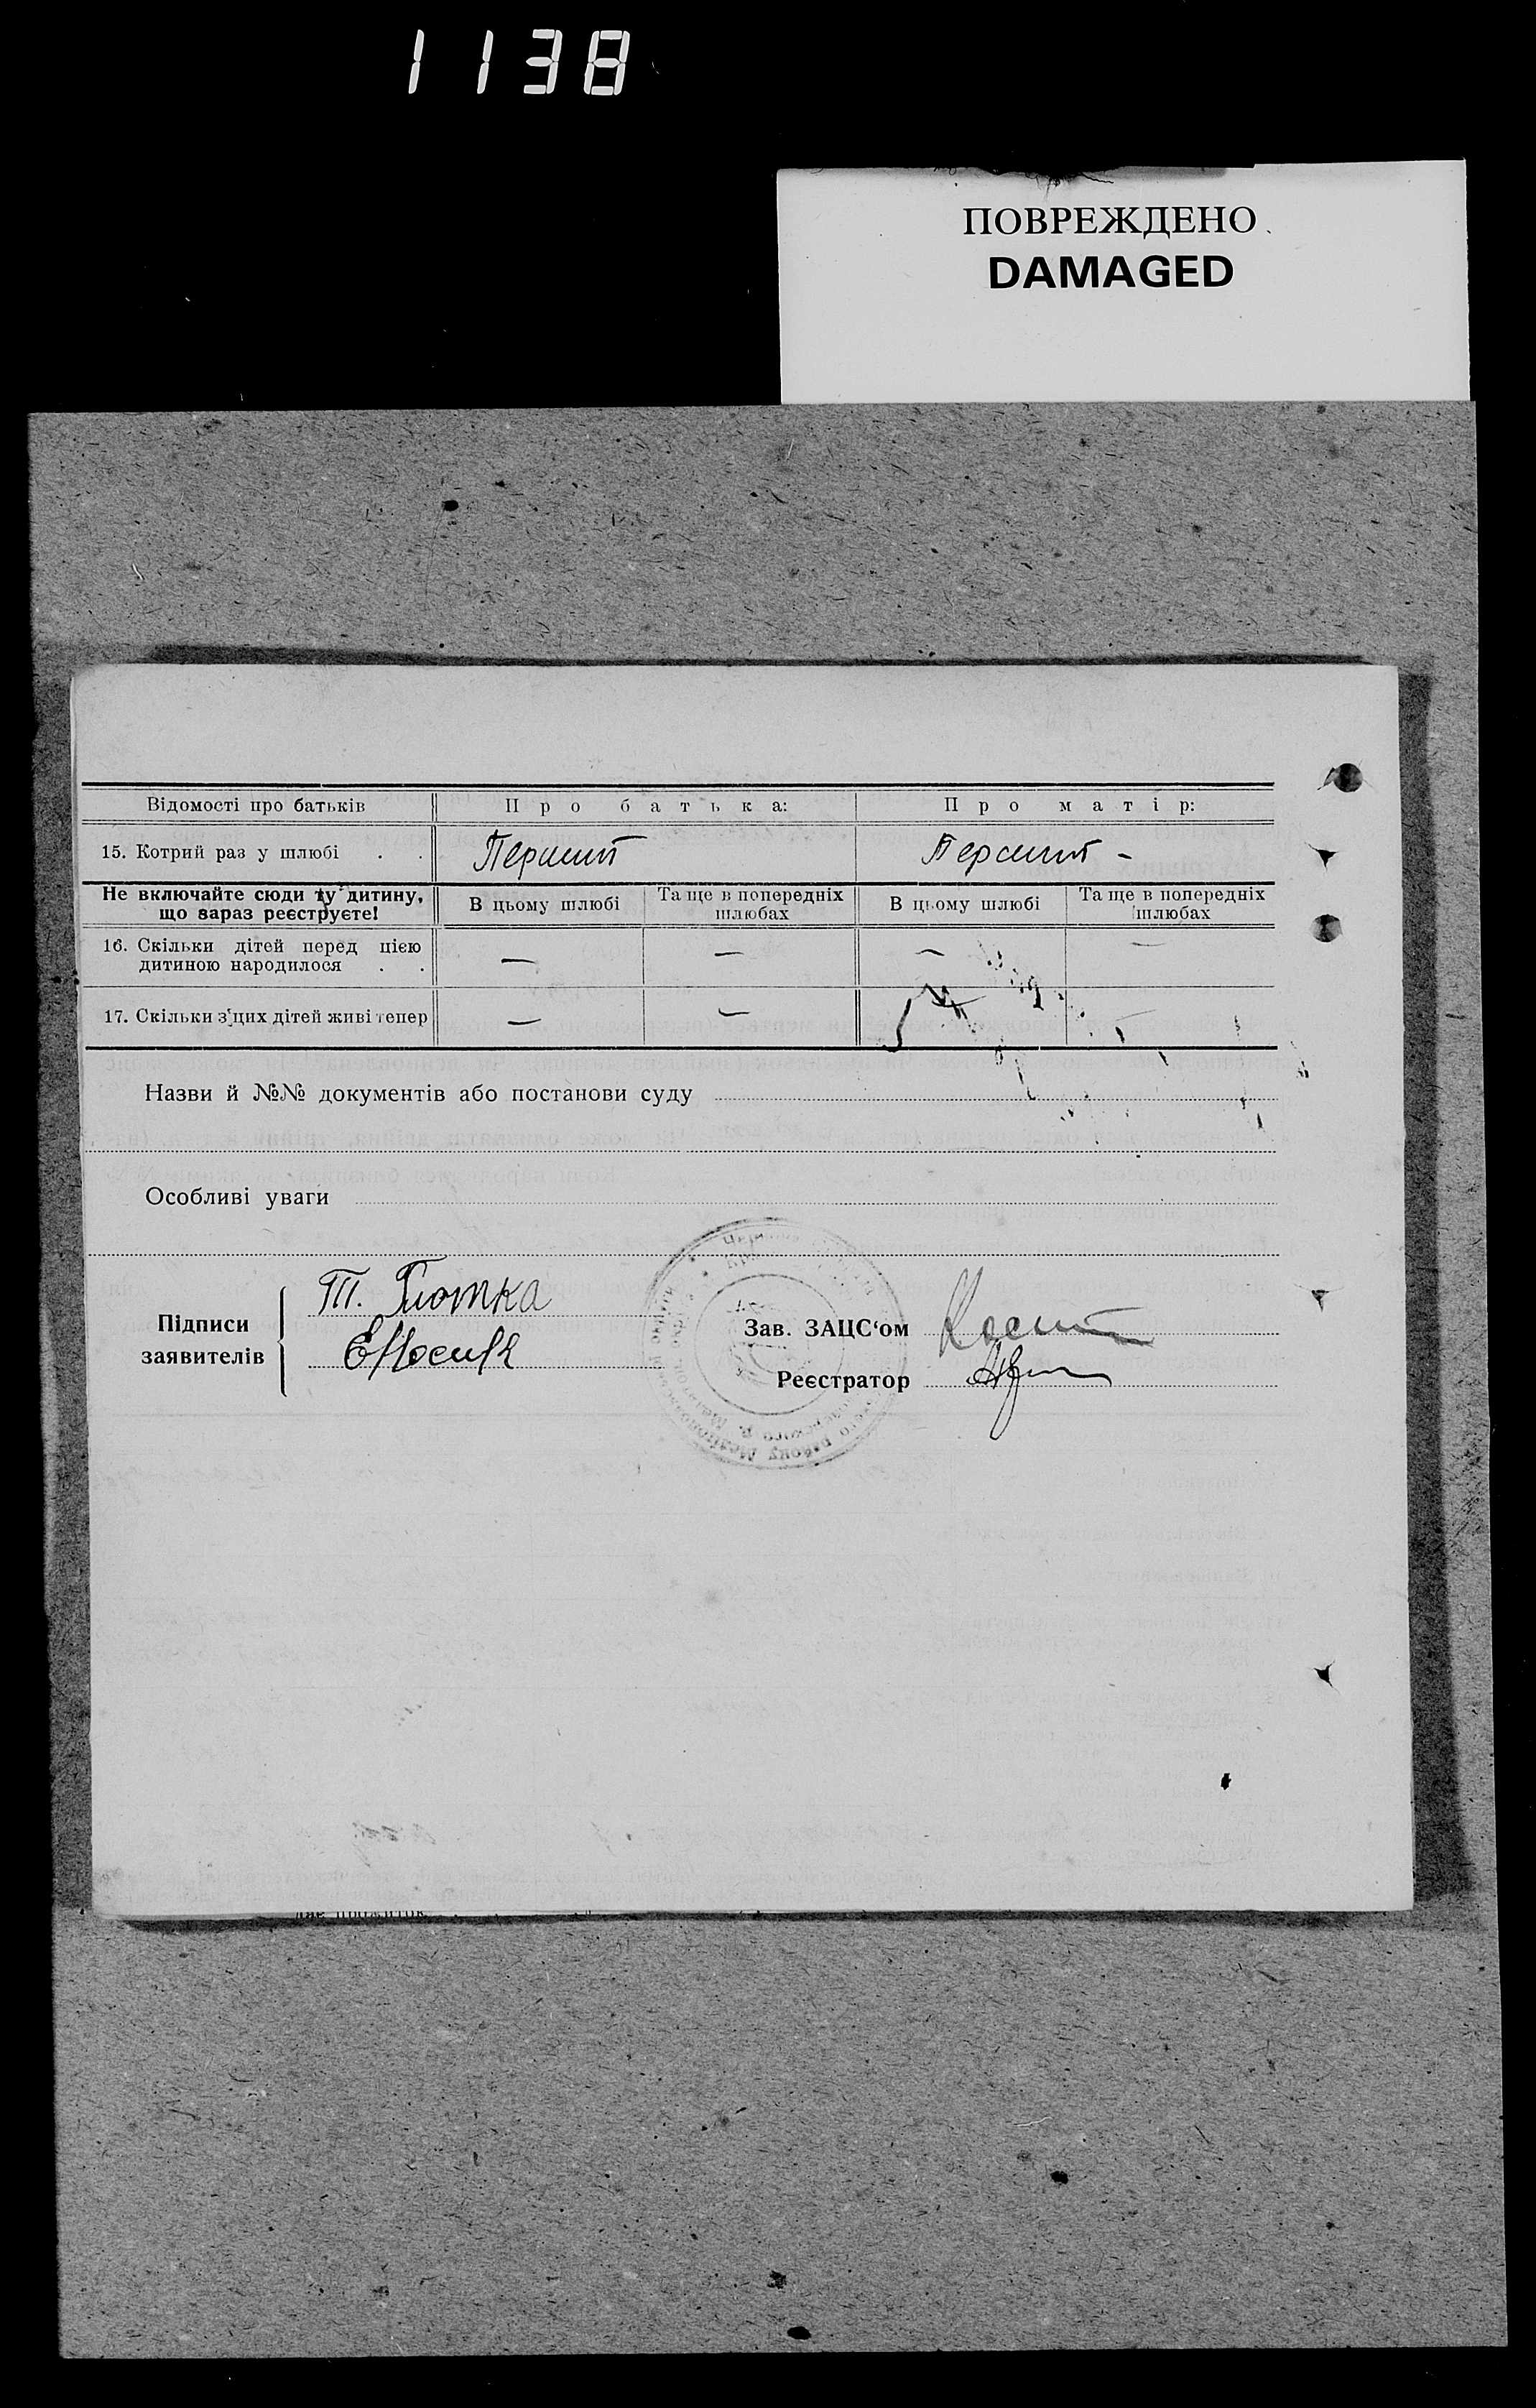 1138
ПОВРЕЖДЕНО
DAMAGED
Відомості про батьків Про батька: Про матір:
15. Котрий раз у шлюбі . . Перший Перший -
Не включайте сюди ту дитину, що вараз реєструєте! В цьому шлюбі Та ще в попередніх шлюбах В цьому шлюбі Та ще в попередніх шлюбах
16. Скільки дітей перед цією
дитиною народилося . . — — — —
17. Скільки з цих дітей живі тепер — —
Назви й №№ документів або постанови суду
Особливі уваги
Підписи
заявителів
Т. Глотка
Зав. ЗАЦС‘ом
Реєстратор